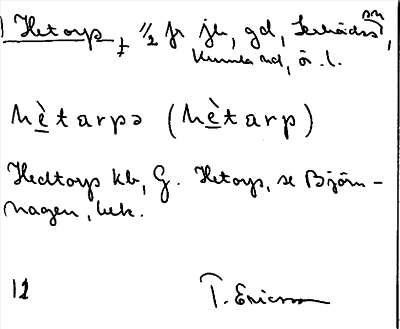 Hetorp, ½ fr jk, gd, Lerbäcks sn,
Kumla hd, ö. l.
hè̱tarpə (hè̱tarp)
Hedtorp kb, G. Hetorp, se Björn-
hagen, bek.
12 T. Ericsson